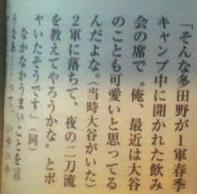 「そんな多田野が1軍春季
キャンプ中に開かれた飲み
会の席で〝俺、最近は大谷
のことも可愛いと思ってる
んだよな。(当時大谷がいた)
2軍に落ちて、夜の二刀流
を教えてやろうかな〟とボ
ヤいたそうです」(同)
なかなかうまいことを言